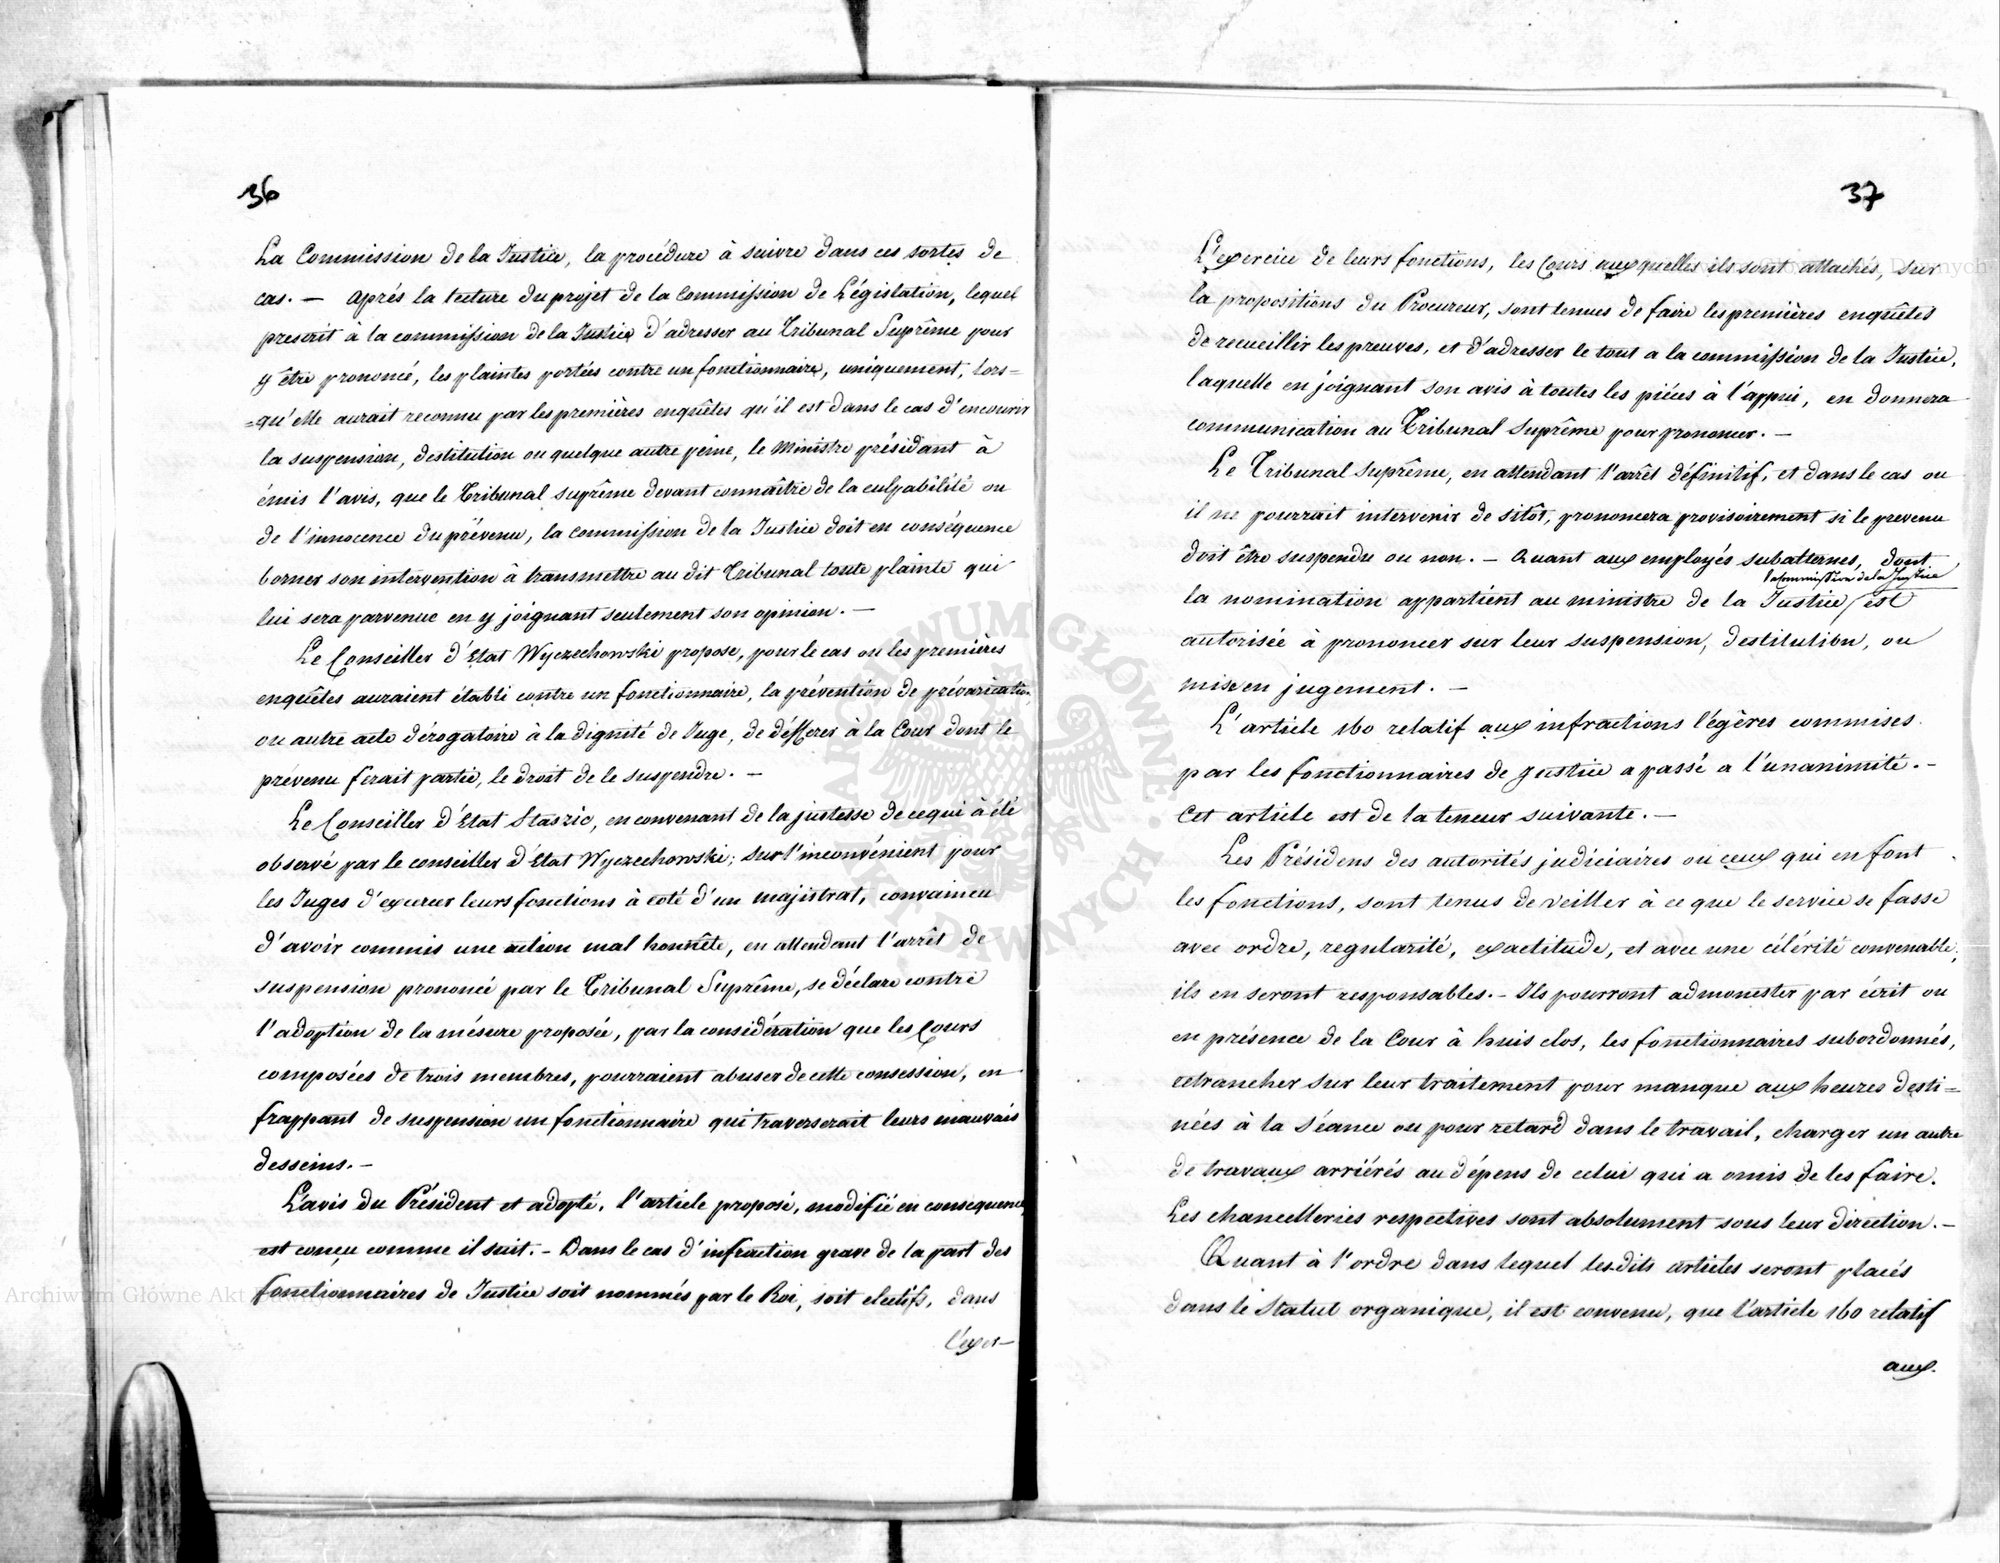 36
La Commission de la Justice, la procédure à suivre dans ces sortes de
cas. — Après la lecture du projet de la Commission de Législation, lequel
prescrit à la commission de la Justice d'adresser au Tribunal Suprême pour
y être prononcé, les plaintes portées contre un fonctionnaire, uniquement, lors=
=qu'elle aurait reconnu par les premières enquêtes qu'il est dans le cas d'encourir
la suspension, destitution ou quelque autre peine, le Ministre président à
émis l'avis, que le Tribunal suprême devant connaître de la culpabilité ou
de l'innocence du prévenu, la commission de la Justice doit en conséquence
borner son intervention à transmettre au dit Tribunal toute plainte qui
lui sera parvenue en y joignant seulement son opinion. —
Le Conseiller d'Etat Wyczechowski propose, pour le cas ou les premières
enquêtes auraient établi contre un fonctionnaire, la prévention de prévarication,
ou autre acte dérogatoire à la dignité de Juge, de déférer à la Cour dont le
prévenu ferait partie, le droit de le suspendre. —
Le Conseiller d'Etat Staszic, en convenant de la justesse de ce qui à été
observé par le conseiller d'Etat Wyczechowski; sur l'inconvénient pour
les Juges d'exercer leurs fonctions à coté d'un majistrat, convaincu
d'avoir commis une action mal honnête, en attendant l'arrêt de
suspension prononcé par le Tribunal Suprême, se déclare contre
l'adoption de la mésure proposée, par la considération que les Cours
composées de trois membres, pourraient abuser de cette consession, en
frappant de suspension un fonctionnaire qui traverserait leurs mauvais
desseins. —
L'avis du Président et adopté, l'article proposé, modifié en consequence
est conçu comme il suit. — Dans le cas d'infraction grave de la part des
fonctionnaires de Justice soit nommés par le Roi, soit electifs, dans
l'exer-
37
L'exercice de leurs fonctions, les Cours auxquelles ils sont attachés, sur
la propositions du Procureur, sont tenues de faire les premières enquêtes
de recueillir les preuves, et d'adresser le tout a la commission de la Justice,
laquelle en joignant son avis à toutes les piéces à l'appui, en donnera
communication au Tribunal Suprême pour prononcer. —
Le Tribunal Suprême, en attendant l'arrêt définitif, et dans le cas ou
il ne pourrait intervenir de sitôt, prononcera provisoirement si le prevenu
doit être suspendu ou non. — Quant aux employés subalternes, dont
la commission de la Justice
la nomination appartient au ministre de la Justice, est
autorisée à prononcer sur leur suspension, destitution, ou
mise en jugement. —
L'article 160 relatif aux infractions légères commises
par les fonctionnaires de Justice a passé a l'unanimité. —
Cet article est de la teneur suivante. —
Les Présidens des autorités judiciaires ou ceux qui en font
les fonctions, sont tenus de veiller à ce que le service se fasse
avec ordre, regularité, exactitude, et avec une célérité convenable,
ils en seront responsables. — Ils pourront admonester par écrit ou
en présence de la Cour à huis clos, les fonctionnaires subordonnés,
retrancher sur leur traitement pour manque aux heures desti=
nées à la Séance ou pour retard dans le travail, charger un autre
de travaux arriérés au dépens de celui qui a omis de les faire.
Les chancelleries respectives sont absolument sous leur direction. —
Quant à l'ordre dans lequel les dits articles seront placés
dans le Statut organique, il est convenu, que l'article 160 relatif
aux.